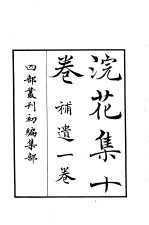 浣花集十
卷補遺一卷
四部叢刊初編集部